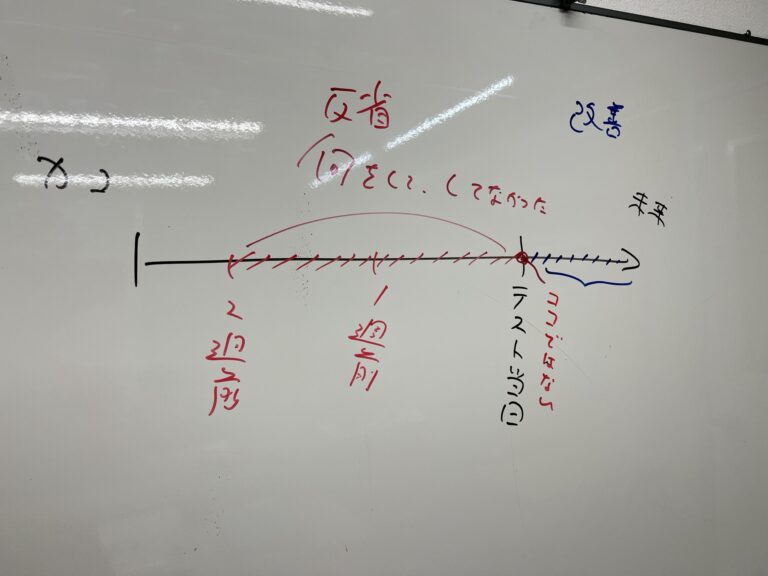 反省
改善
何をして、してなかった
未来
2週間前
1週間前
テスト当日
ココではない